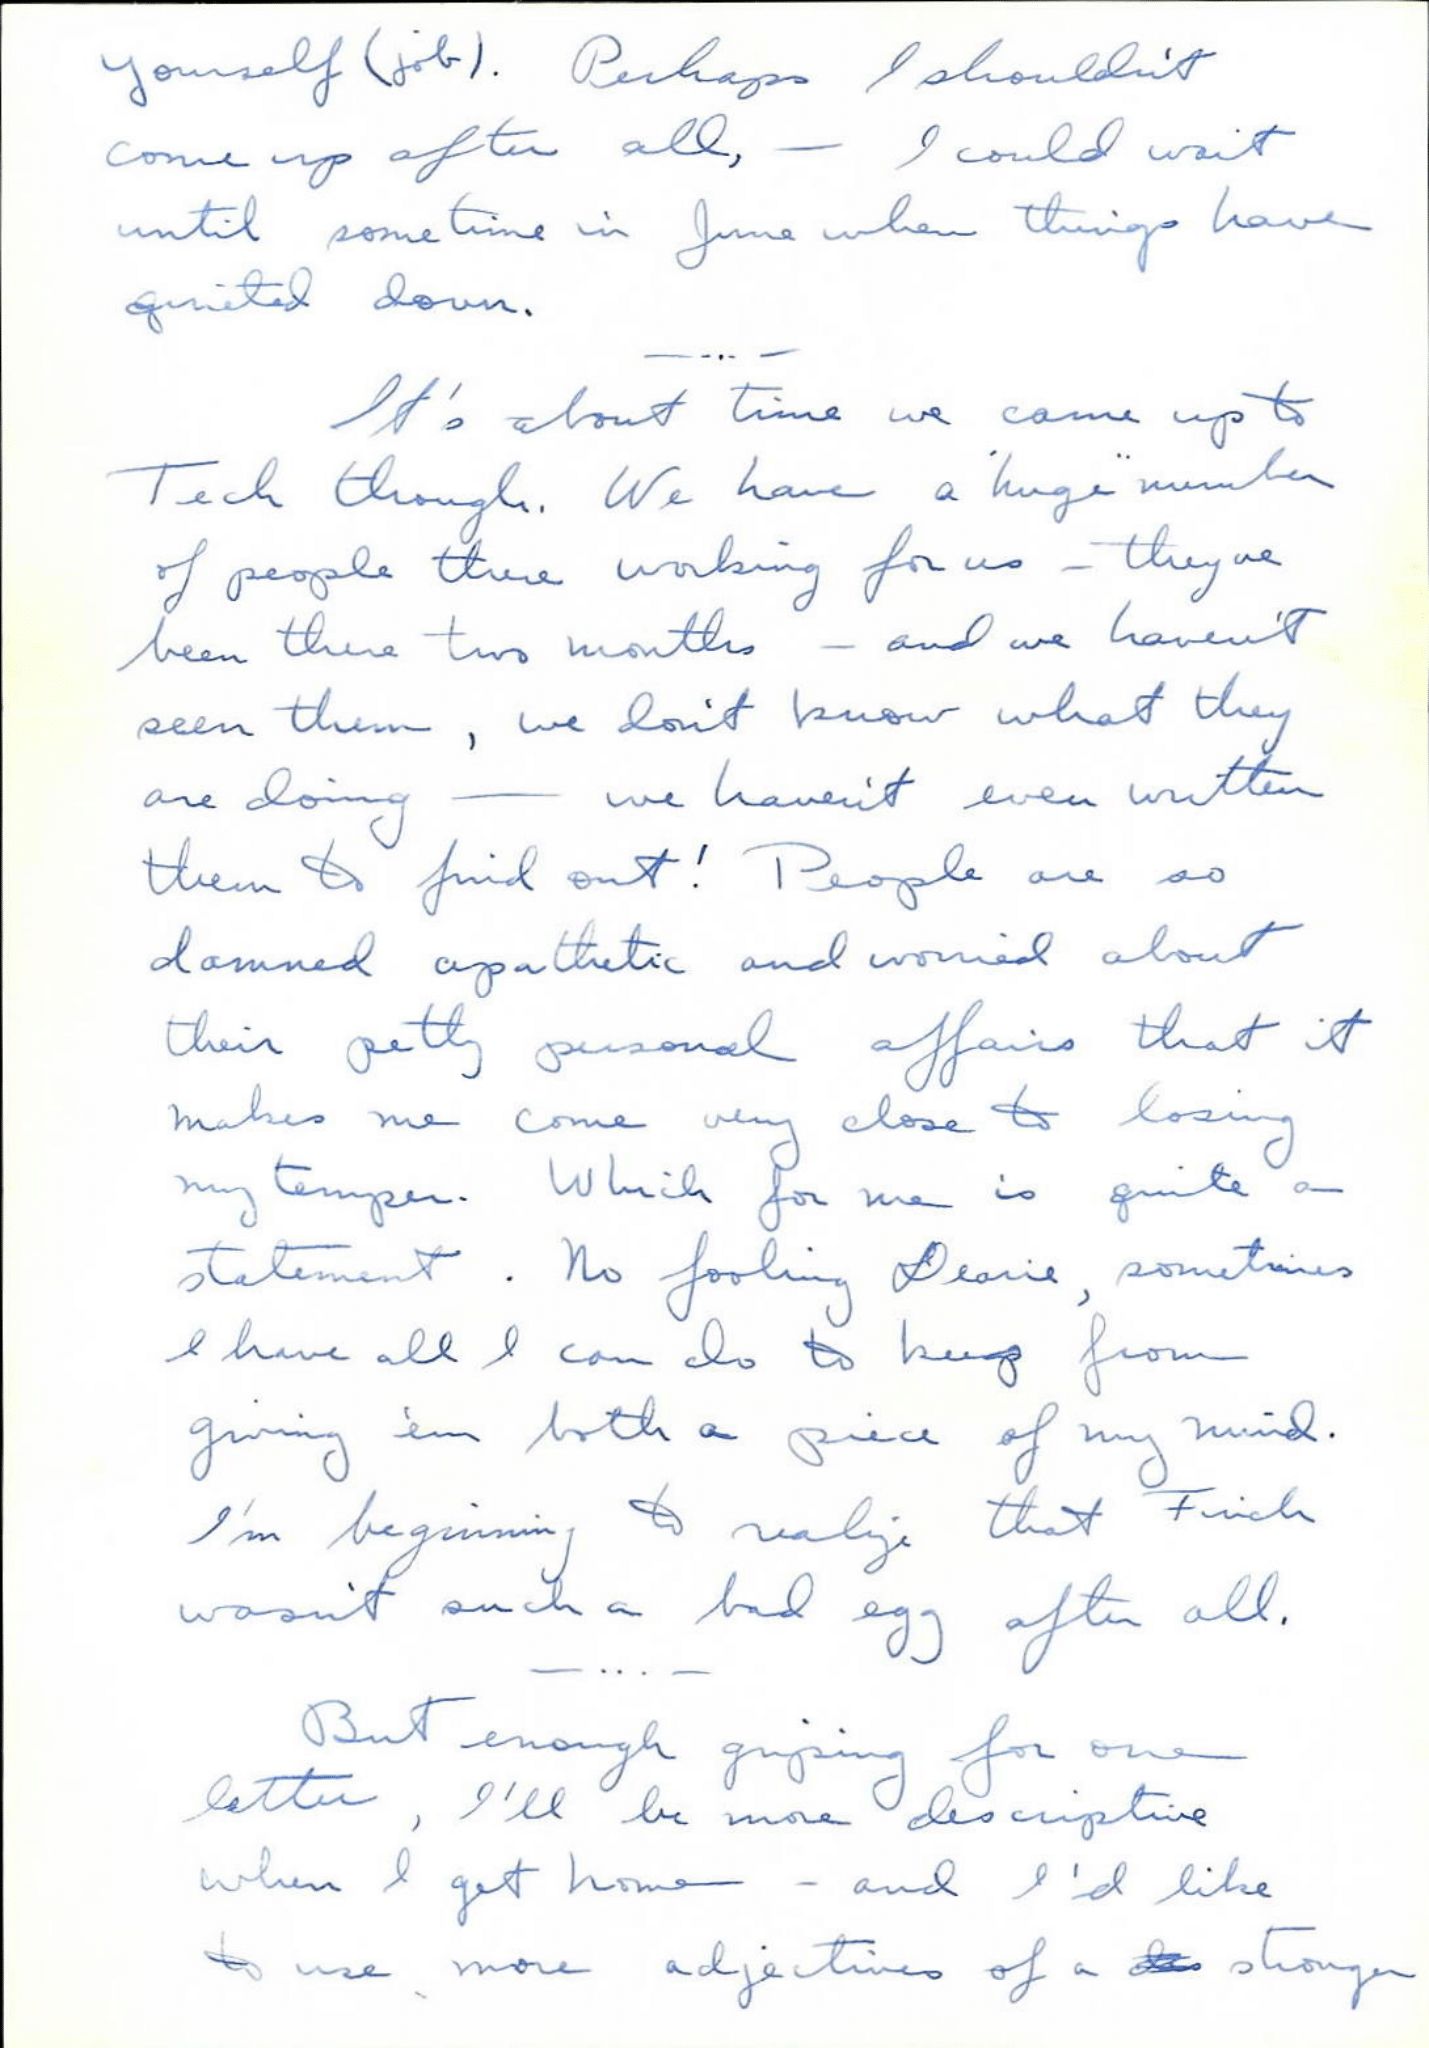 yourself (job). Perhaps I shouldn't
come up after all, — I could wait
until sometime in June when things have
quieted down.
— ... —
It's about time we came up to
Tech though. We have a "huge" number
of people there working for us — they've
been there two months — and we haven't
seen them, we don't know what they
are doing — we haven't even written
them to find out! People are so
damned apathetic and worried about
their petty personal affairs that it
makes me come very close to losing
my temper. Which for me is quite a
statement. No fooling Dearie, sometimes
I have all I can do to keep from
giving 'em both a piece of my mind.
I'm beginning to realize that Finch
wasn't such a bad egg after all.
— ... —
But enough griping for one
letter, I'll be more descriptive
when I get home — and I'd like
to use more adjectives of a stronger